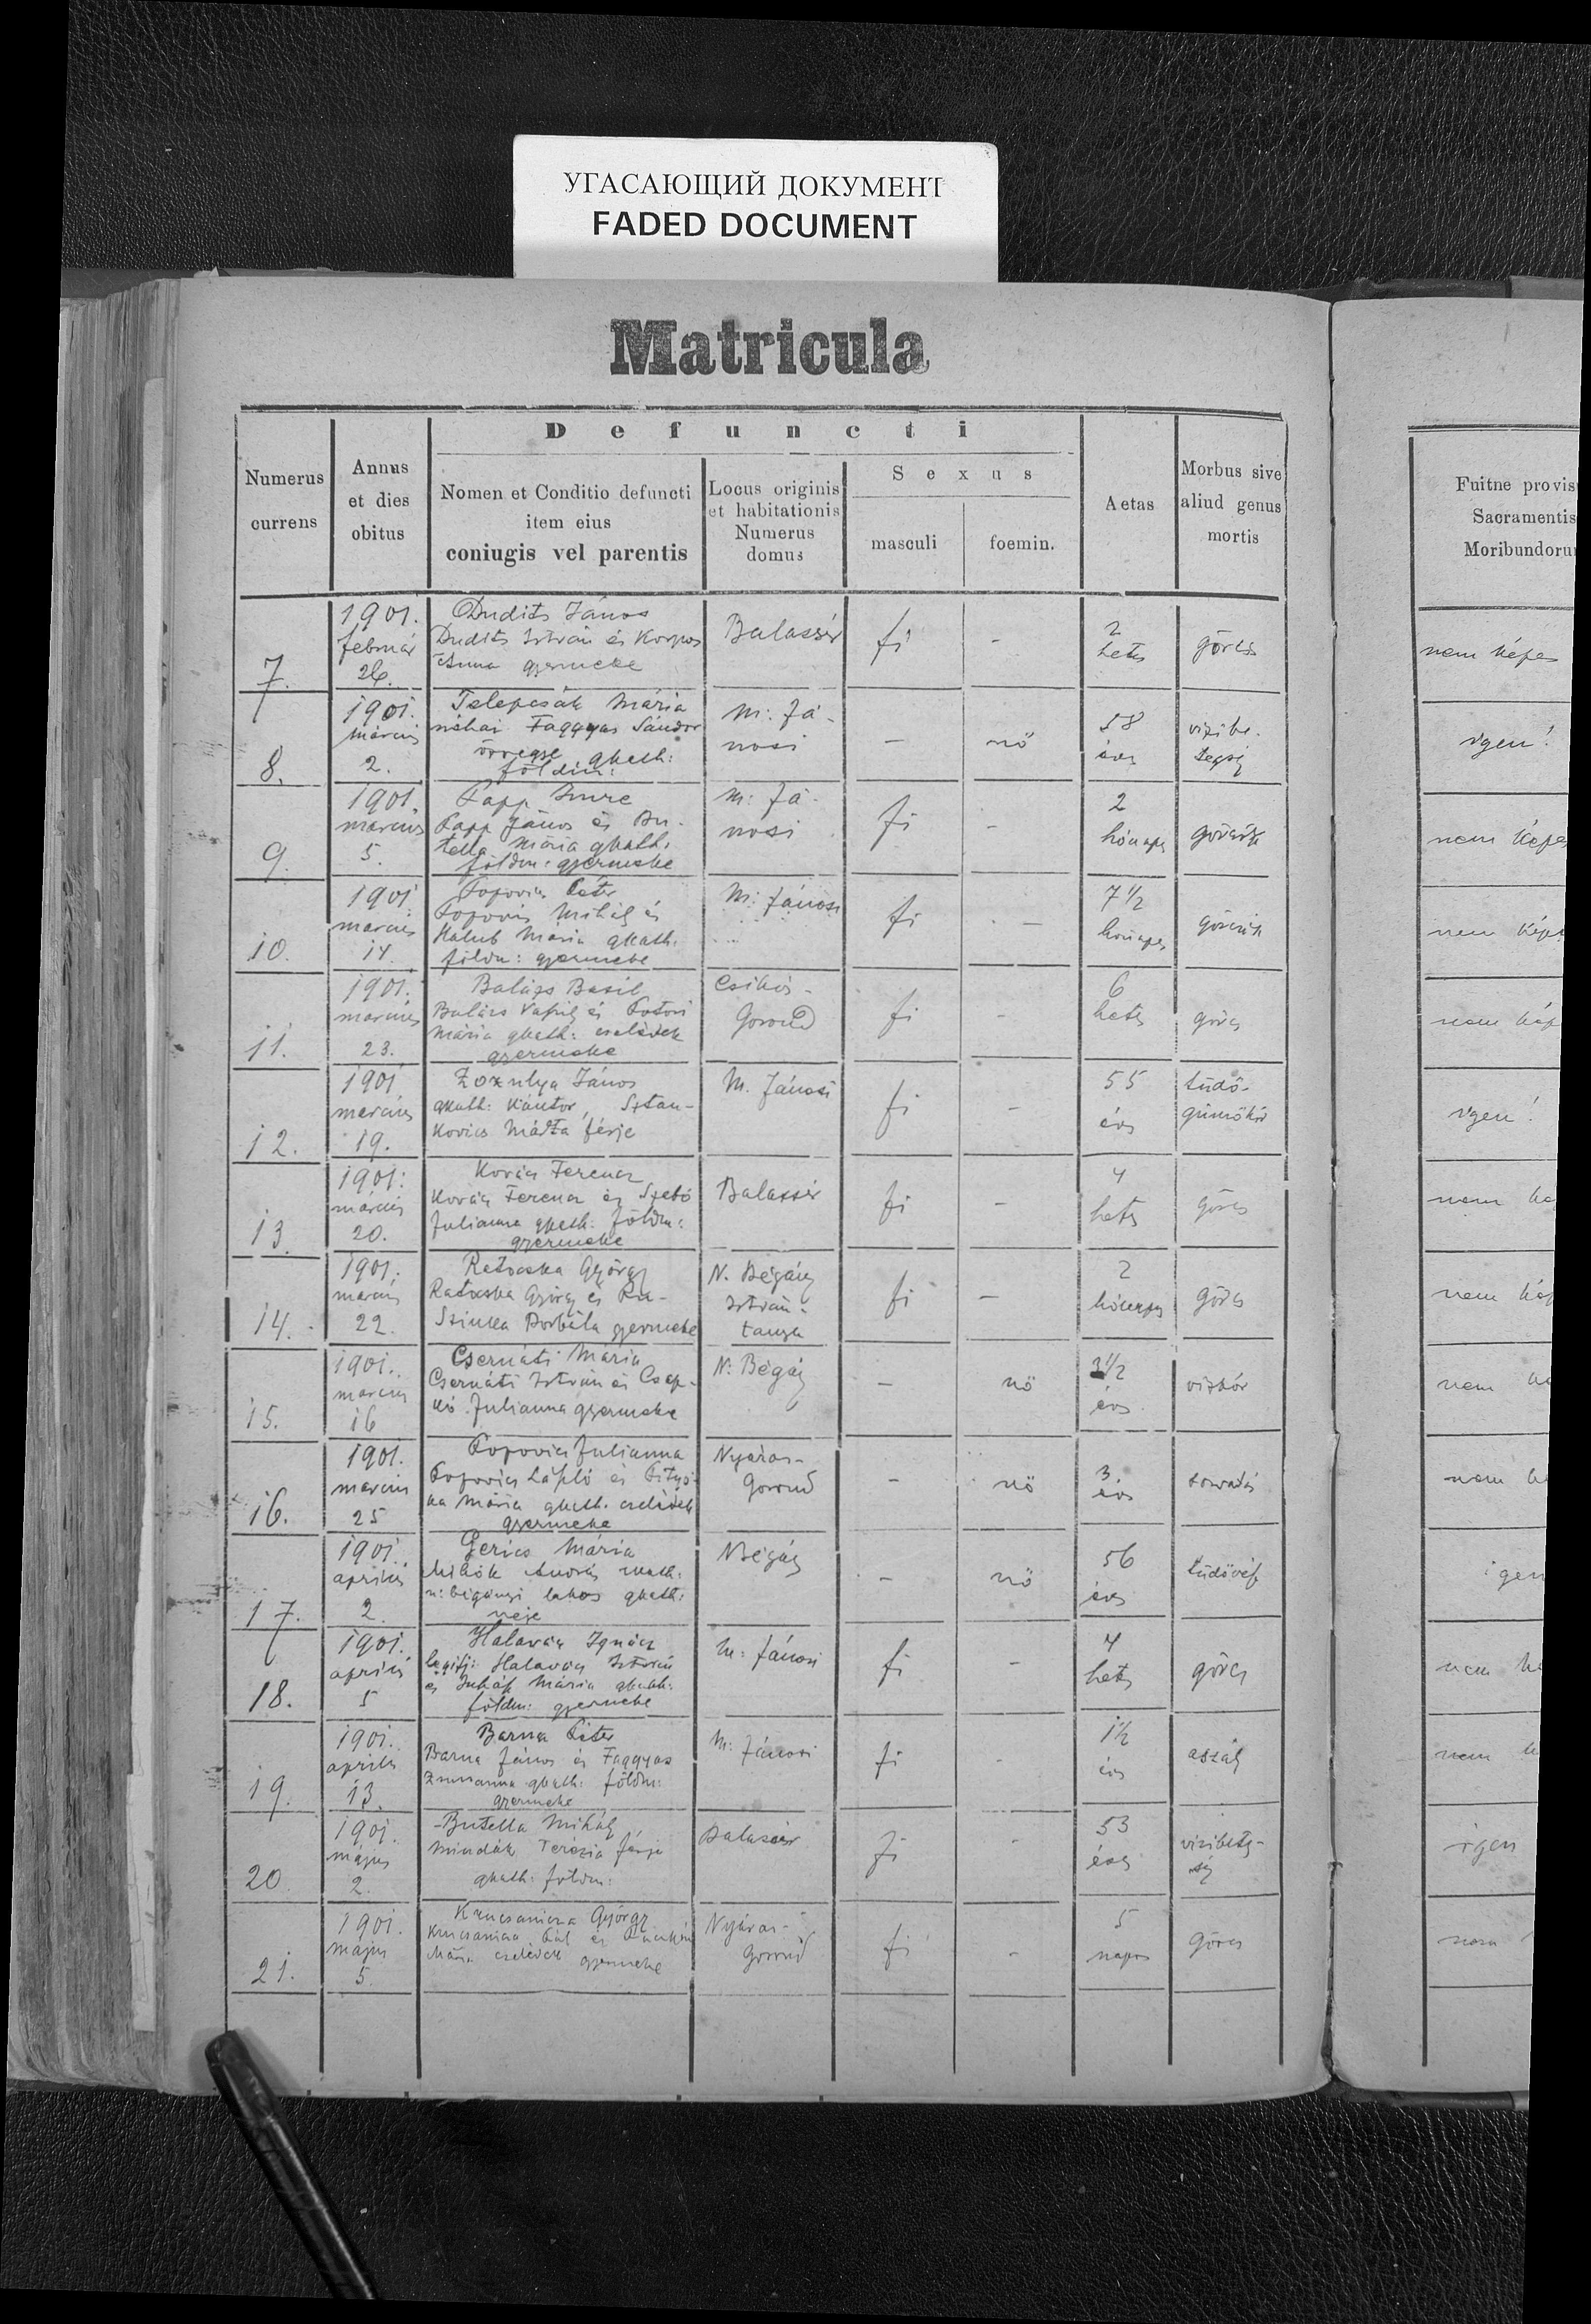 УГАСАЮЩИЙ ДОКУМЕНТ
FADED DOCUMENT
Matricula
Defuncti
Numerus currens
Annus et dies obitus
Nomen et Conditio defuncti item eius coniugis vel parentis
Locus originis et habitationis Numerus domus
Sexus
masculi
foemin.
Aetas
Morbus sive aliud genus mortis
Fuitne provis
Sacramentis
Moribundoru
7. 1901. február 26.
Dudits János
Dudits István és Korpos
Anna gyermeke
Balassér
fi
-
2 hetes
görcs
nem képes
8. 1901. március 2.
Telepcsák Mária
néhai Faggyas Sándor
özvegye gkath:
földm:
M: Já-
nosi
-
nő
58 éves
vizibe-
tegség
igen!
9. 1901. március 5.
Papp Imre
Papp János és Bu-
tella Mária gkath.
földm: gyermeke
M: Já-
nosi
fi
-
2 hónapos
görcsök
nem képes
10. 1901 március 14.
Popovics Péter
Popovics Mihály és
Halub Mária gkath.
földm: gyermeke
M: Jánosi
fi
-
7 1/2 hónapos
görcsök
nem képe
11. 1901. március 23.
Balázs Basil
Mária gkath: cselédek
gyermeke
Csikós-
Gorond
fi
-
6 hetes
görcs
nem kép
12. 1901 március 19.
Zozulya János
gkath: Kántor, Sztan-
kovics Márta férje
M. Jánosi
fi
-
55 éves
tüdő-
gümőkór
igen!
13. 1901. március 20.
Kovács Ferencz
Kovács Ferencz és Szabó
Julianna gkath. földm:
gyermeke
Balassér
fi
-
4 hetes
görcs
nem ké
14. 1901. március 22.
Ratoska György
Ratoska György és Ru-
Szinka Borbála gyermeke
N. Bégány
István-
tanya
fi
-
2 hónapos
görcs
nem kép
15. 1901. március 16
Csernáti Mária
Csernáti István és Csep-
kó Julianna gyermeke
N: Bégány
-
nő
1/2 éves
vizkór
nem ké
16. 1901. március 25
Popovics Julianna
Popovics László és Pityó-
ka Mária gkath. cselédek
gyermeke
Nyáras-
Gorond
-
nő
3. éves
sorvadás
nem
17. 1901. április 2.
Gerics Mária
n: bégányi lakos gkath:
neje
N Bégány
-
nő
56 éves
tüdővész
igen
18. 1901. április 5
Halavács Ignácz
Halavács István
és Juhász Mária gkath:
földm: gyermeke
M: Jánosi
fi
-
4 hetes
görcs
nem ké
19. 1901. április 13.
Barna Péter
Barna János és Faggyas
Zsuzsanna gkath: földm:
gyermeke
M: Jánosi
fi
-
1 1/2 éves
aszály
nem
20. 1901. május 2.
Butella Mihály
Mindák Terézia férje
gkath: földm:
Balassér
fi
-
53 éves
vizibeteg-
ség
igen
21. 1901. május 5.
Krucsanicza György
Mária cselédek gyermeke
Nyáras-
Gorond
fi
-
5 napos
Görcs
nem